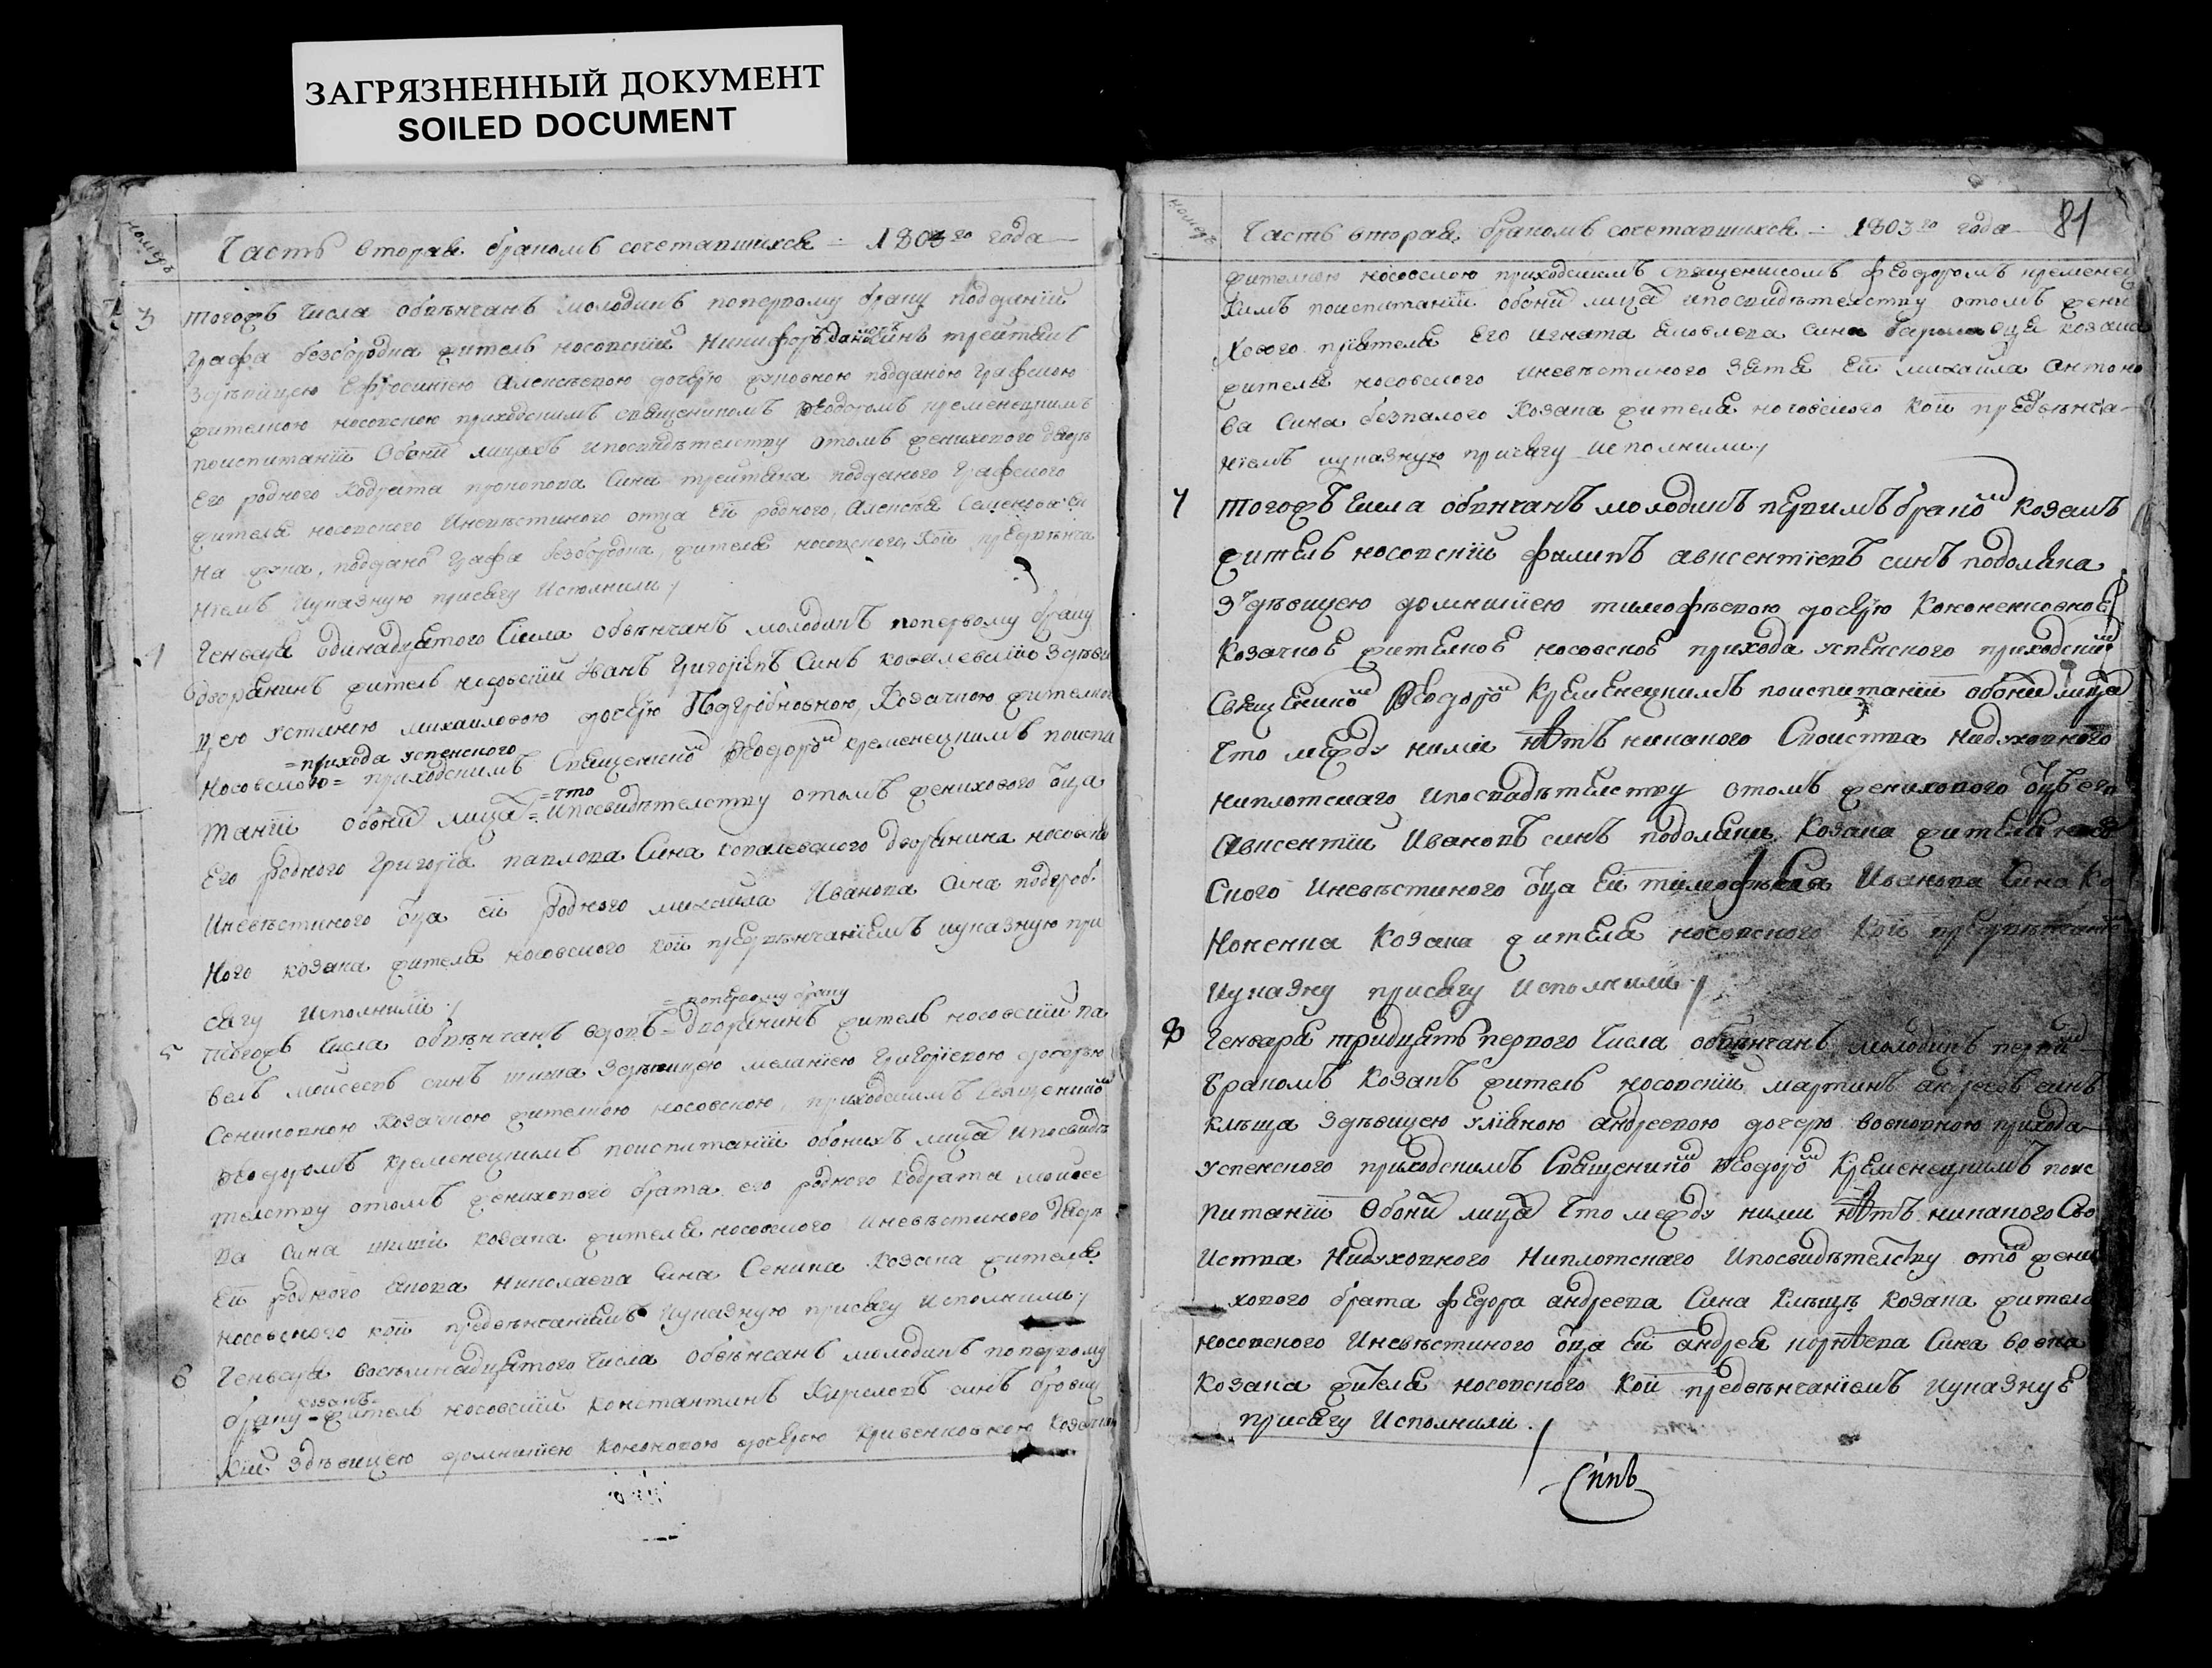 ЗАГРЯЗНЕННЫЙ ДОКУМЕНТ
SOILED DOCUMENT
номеръ
Часть вторая бракомъ сочетавшихся = 1803го года
3
тогожъ числа обвѣнчанъ молодикъ поперьвому браку подданій
графа безбородка житель носовскій Никифоръ синъ трейтякъ
здѣвицею Ефросиніею Алексѣевою дочерю жуковною подданою графскою
жителкою носовскою приходскимъ священникомъ Ѳеодоромъ кременецкимъ
поиспитаніи обоихъ лицахъ ипосвидѣтелству отомъ женихового дядъ
Его родного Кодрата прокопова Сина трейтяка подданого Графского
жителя носовского Иневѣстиного отца Ей родного Алексѣя Семенова си
на жука, поддано Графа безбородка, жителя носовского Кой предвѣнча
ніемъ Иуказную присягу Исполнили
4
Генваря одинадцятого Числа обвѣнчанъ молодикъ поперьвому браку
дворянинъ житель носовскій Иванъ Григоріевъ Синъ ковалевскій Здѣви
цею Устиною михаиловою дочерю Подгрібновною, Козачкою жителкою
=прихода успенского
Носовскою= приходскимъ Священнико Ѳеодоро кременецкимъ поиспи
=что
таніи обоихъ лица = Ипосвидѣтелству отомъ женихового оца
Его родного Григорія павлова Сина ковалевского дворянина носовско
Иневѣстиного оца ей родного михаила Иванова Сина подгреб
Ного козака жителя носовского кой предвѣнчаніемъ иуказную при
сягу Исполнили
5
=поперьвому браку
тогожъ Числа обвѣнчанъ вдовъ = дворянинъ житель носовскій па
велъ моисеевъ синъ шиша здѣвицею меланіею григоріевою дочерью
Сениковною козачкою жителкою носовскою, приходскимъ священнико
Ѳеодоромъ кременецкимъ поиспитаніи обоихъ лица Ипосвидѣ
телству отомъ женихового брата его родного Кодрата моисее
ва Сина шиши козака жителя носовского Иневѣстиного дядъ
Ей родного Якова Николаева Сина Сеника Козака жителя
носовского кой предвѣнчаніемъ Иуказную присягу исполнили
6
Генваря восѣмнадцятого Числа обвѣнчанъ молодикъ поперьвому
козакъ
браку = житель носовскій Константинъ Кириловъ синъ
кій Здѣвицею домникіею Кононовою дочерою Кривенковною козачк
номеръ
Часть вторая, бракомъ сочетавшихся = 1803го года
81
жителкою носовскою приходскимъ священникомъ Ѳеодоромъ кременец
кимъ поиспитаніи обоихъ лица ипосвидѣтелству отомъ жени
хового пріятеля Его игната яковлева сина козака
жителя носовского иневѣстиного Зятя Ей михаила антоно
ва Сина безпалого Козака жителя носовского кой предвѣнча
ніемъ иуказную присягу исполнили
7
тогожъ числа обвѣнчанъ молодикъ первимъ брако козакъ
житель носовскій филипъ авксентіевъ синъ подоляка
Здѣвицею домникіею тимофѣевою дочерю Кононенковною
Козачкое жителкое носовское прихода успенского приходски
Священнико Ѳеодоро Кременецкимъ поиспитаніи обоихъ лица
Что между ними нѣтъ никакого Своиства нидуховного
ниплотскаго ипосвидѣтелству отомъ женихового оцъ его
Авксентіи Ивановъ синъ подоляки Козака жителя носо
ского иневѣстиного оца Ей тимофѣея Иванова Сина Ко
Ноненка Козака жителя носовского Кой предвѣнчаніе
Иуказну присягу исполнили
8
Генваря тридцять первого Числа обвѣнчанъ молодикъ перви
бракомъ Козакъ житель носовскій мартинъ андреевъ синъ
клѣща Здѣвицею уліяною андреевою дочерю вовковною прихода
успенского приходскимъ Священнико Ѳеодоро Кременецкимъ поис
питаніи обоихъ лица Что между ними нѣтъ никакого Сво
иства Нидуховного Ниплотскаго Ипосвидѣтелству ото жени
хового брата Федора андреева Сина Клѣщѣ козака жителя
носовского Иневѣстиного оца Ей андрея корнѣева Сина вовка
Козака жителя носовского кой предвѣнчаніемъ иуказнуе
присягу Исполнили.